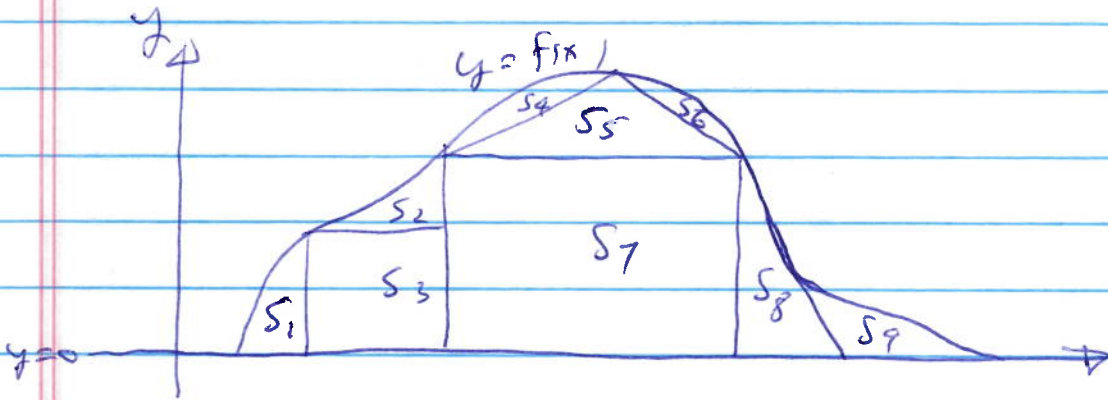 y
y = f(x)
S4
S5
S6
S2
S7
S3
S8
S1
S9
y=0